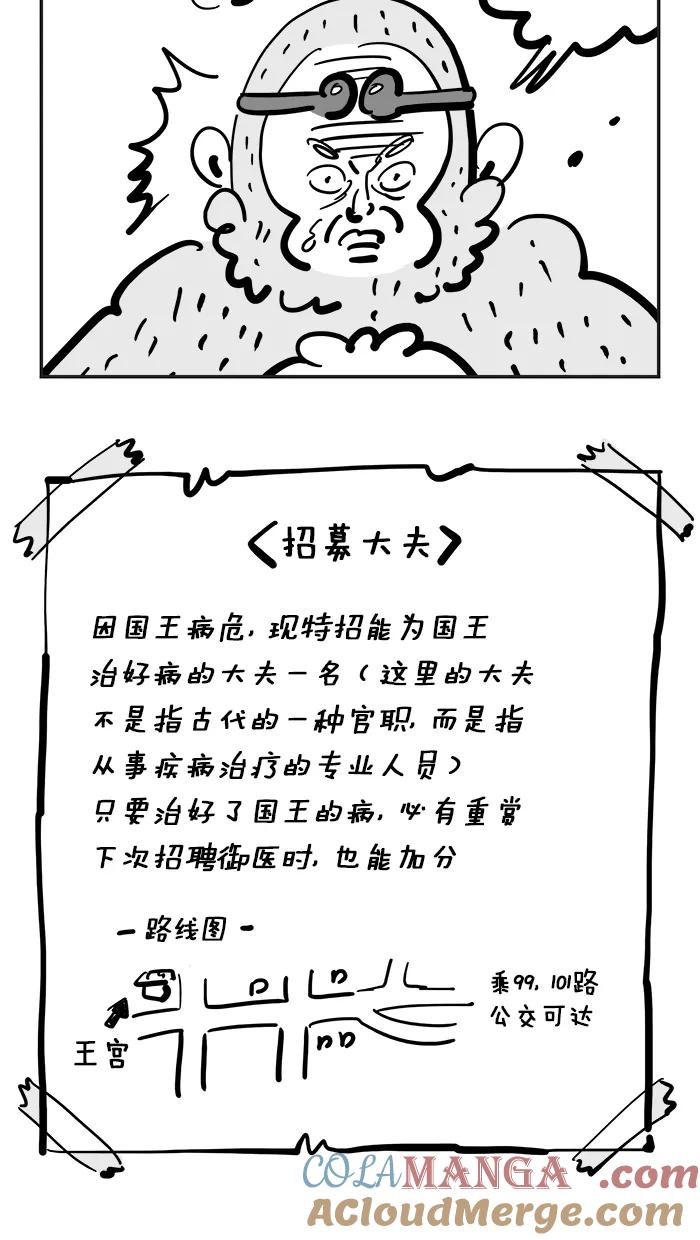 <招募大夫>
因国王病危，现特招能为国王
治好病的大夫一名（这里的大夫
不是指古代的一种官职，而是指
从事疾病治疗的专业人员）
只要治好了国王的病，必有重赏
下次招聘御医时，也能加分
-路线图-
乘99,101路
公交可达
王宫
COLAMANGA.com
ACloudMerge.com